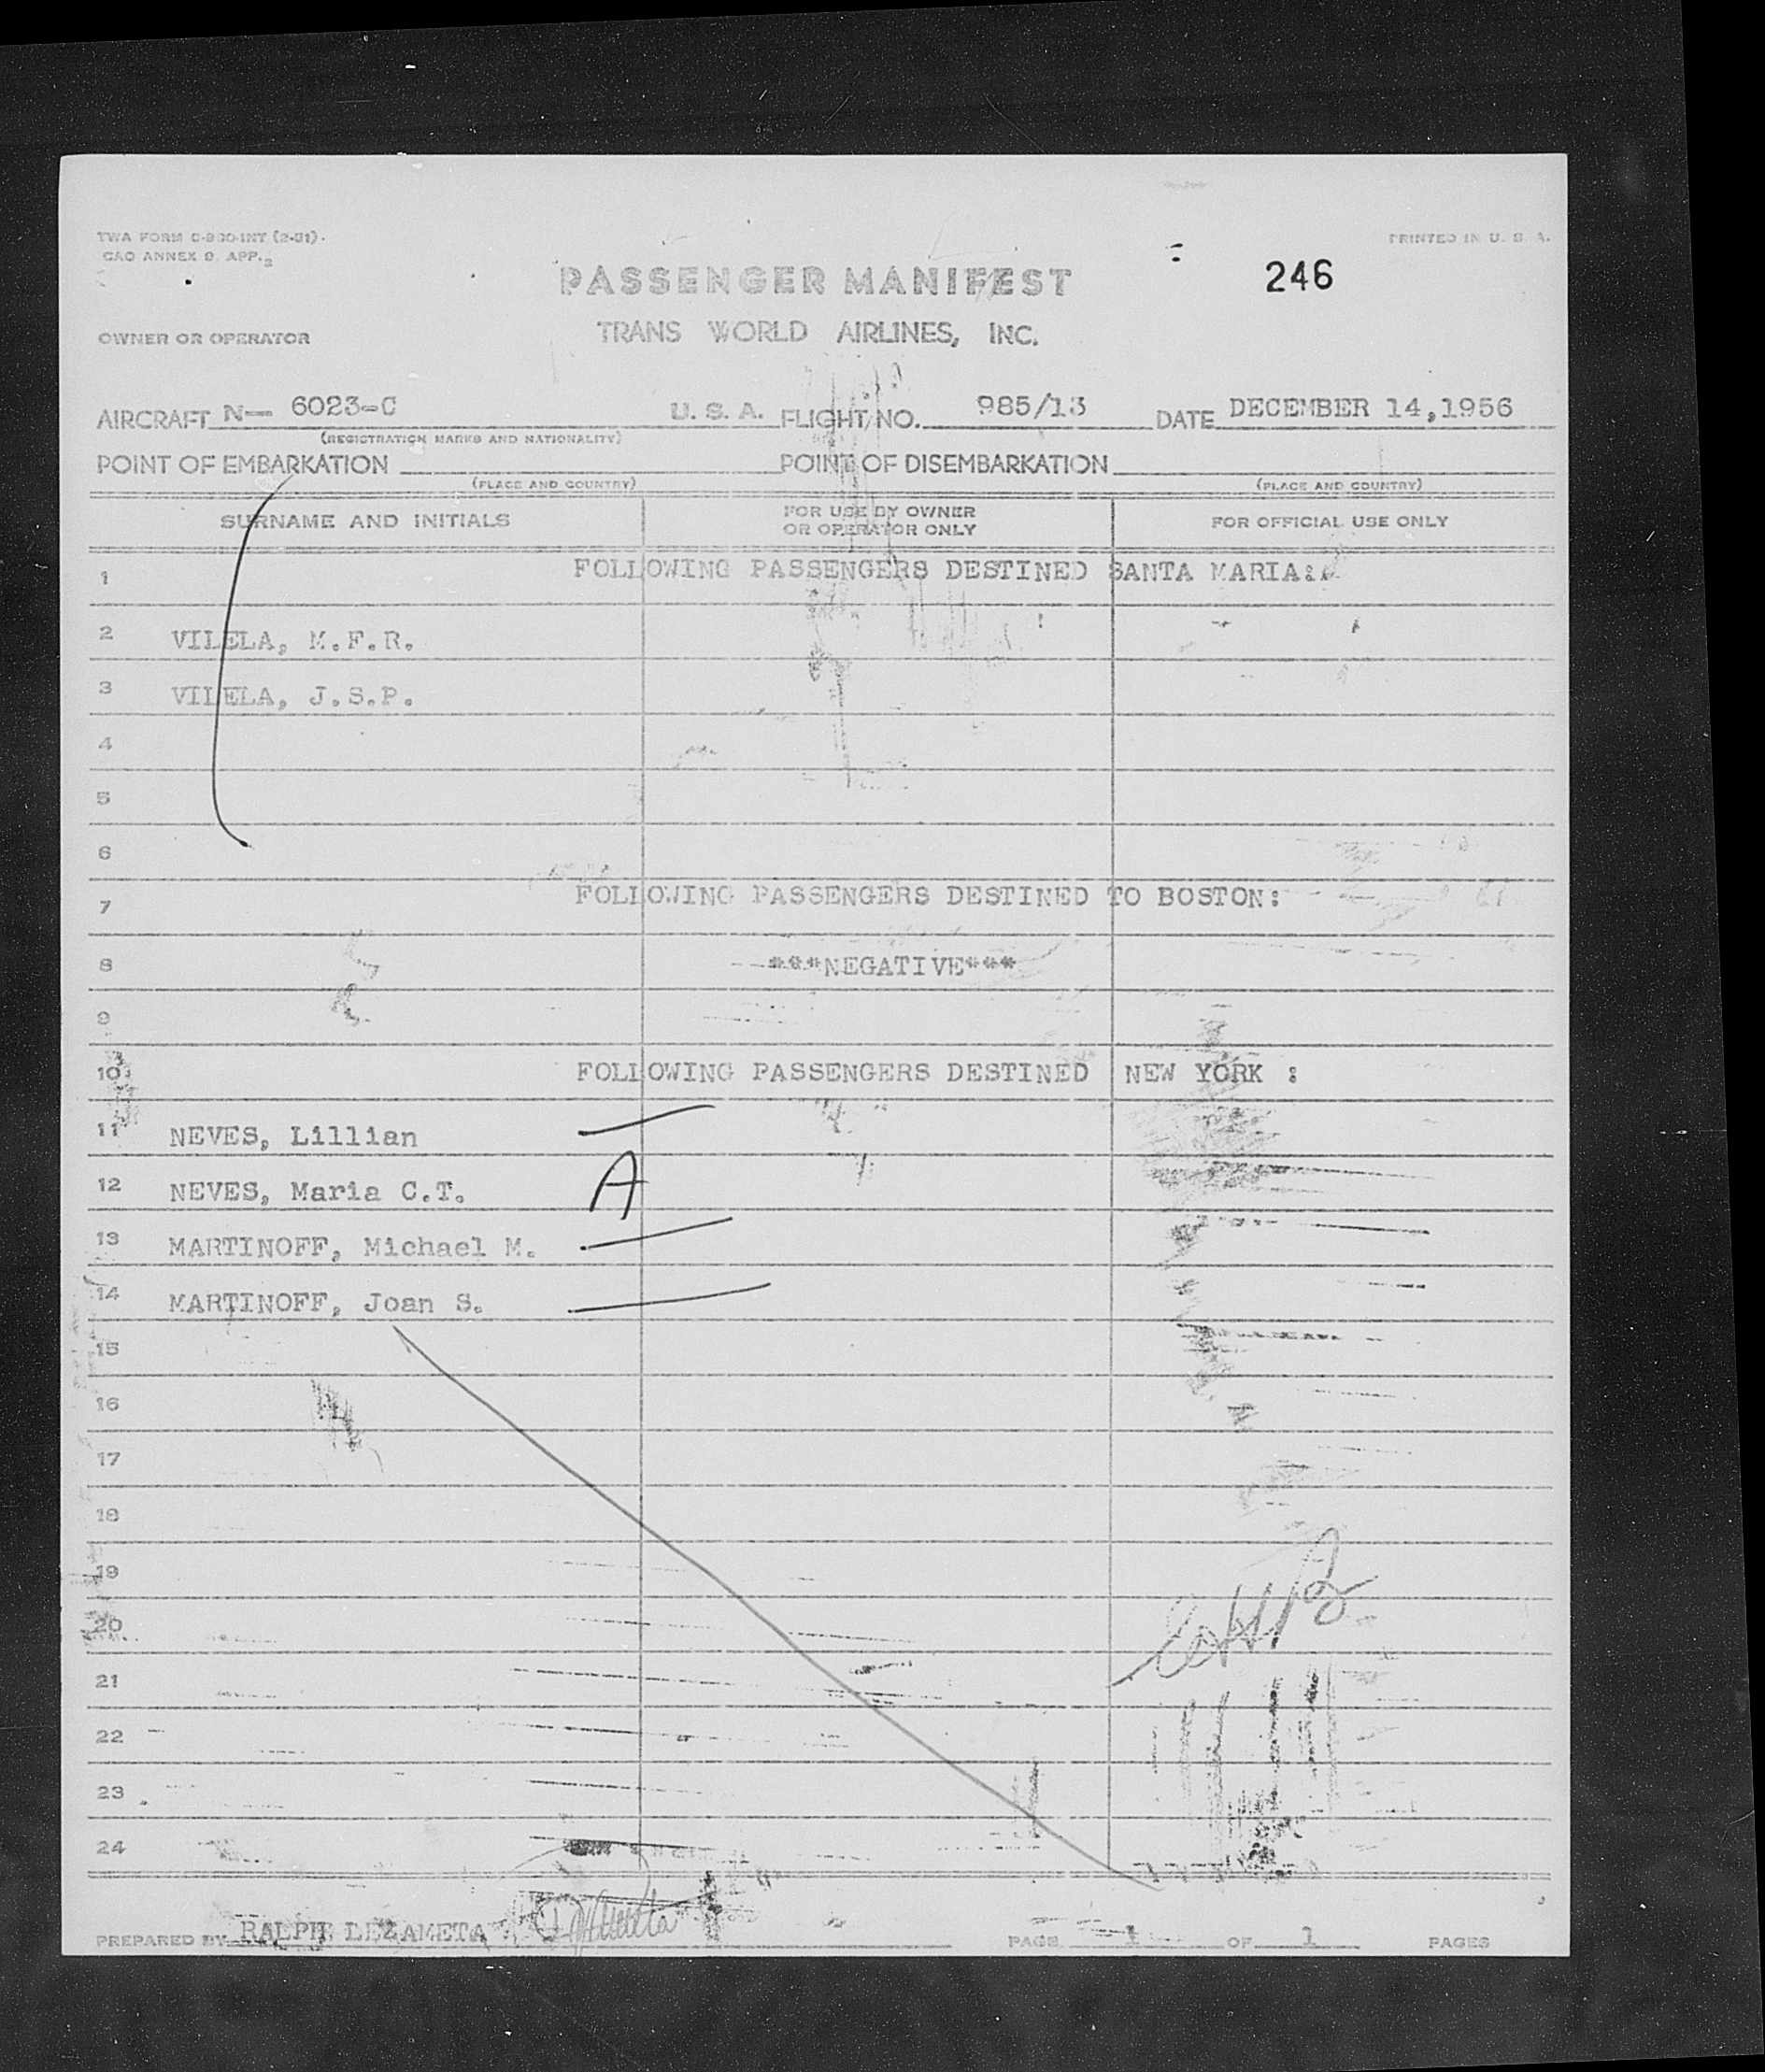 TWA FORM C-930-INT (2-51).
PRINTED IN U. S. A.
CAO ANNEX 9. APP. 2
PASSENGER MANIFEST
246
OWNER OR OPERATOR
TRANS WORLD AIRLINES, INC.
AIRCRAFT N- 6023-C U. S. A. FLIGHT NO. 985/13 DATE DECEMBER 14,1956
(REGISTRATION MARKS AND NATIONALITY)
POINT OF EMBARKATION POINT OF DISEMBARKATION
(PLACE AND COUNTRY) (PLACE AND COUNTRY)
SURNAME AND INITIALS FOR USE BY OWNER OR OPERATOR ONLY FOR OFFICIAL USE ONLY
1 FOLLOWING PASSENGERS DESTINED SANTA MARIA:
2 VILELA, M.F.R.
3 VILELA, J.S.P.
4
5
6
7 FOLLOWING PASSENGERS DESTINED TO BOSTON:
8 ***NEGATIVE***
9
10 FOLLOWING PASSENGERS DESTINED NEW YORK :
11 NEVES, Lillian
12 NEVES, Maria C.T. A
13 MARTINOFF, Michael M.
14 MARTINOFF, Joan S.
15
16
17
18
19
20
21
22
23
24
PREPARED BY RALPH LEZAMETA PAGE 1 OF 1 PAGES